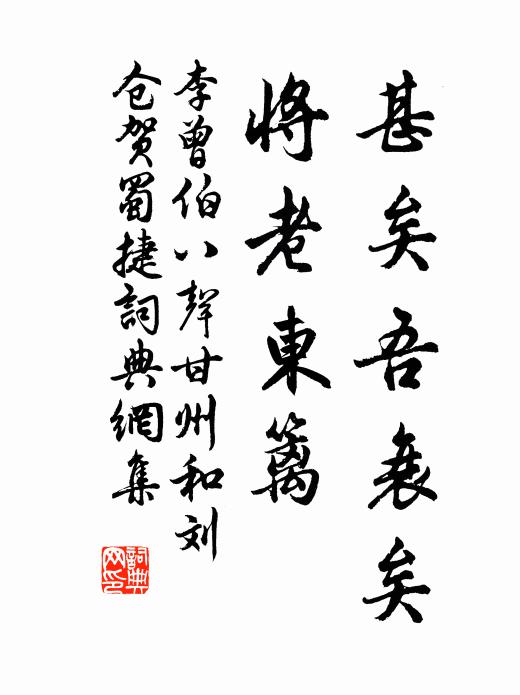 甚矣吾衰矣
將老東籬
李曾伯八聲甘州和刘
仓贺蜀捷詞典網集
詞典网印